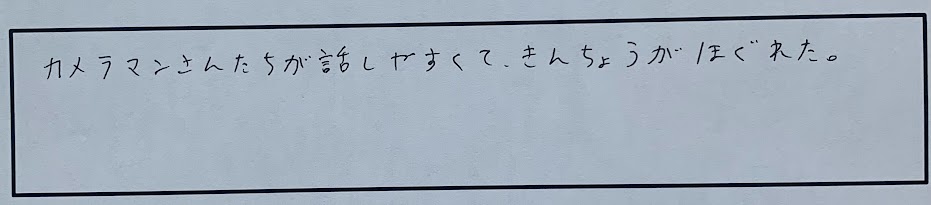 カメラマンさんたちが話しやすくて、きんちょうがほぐれた。